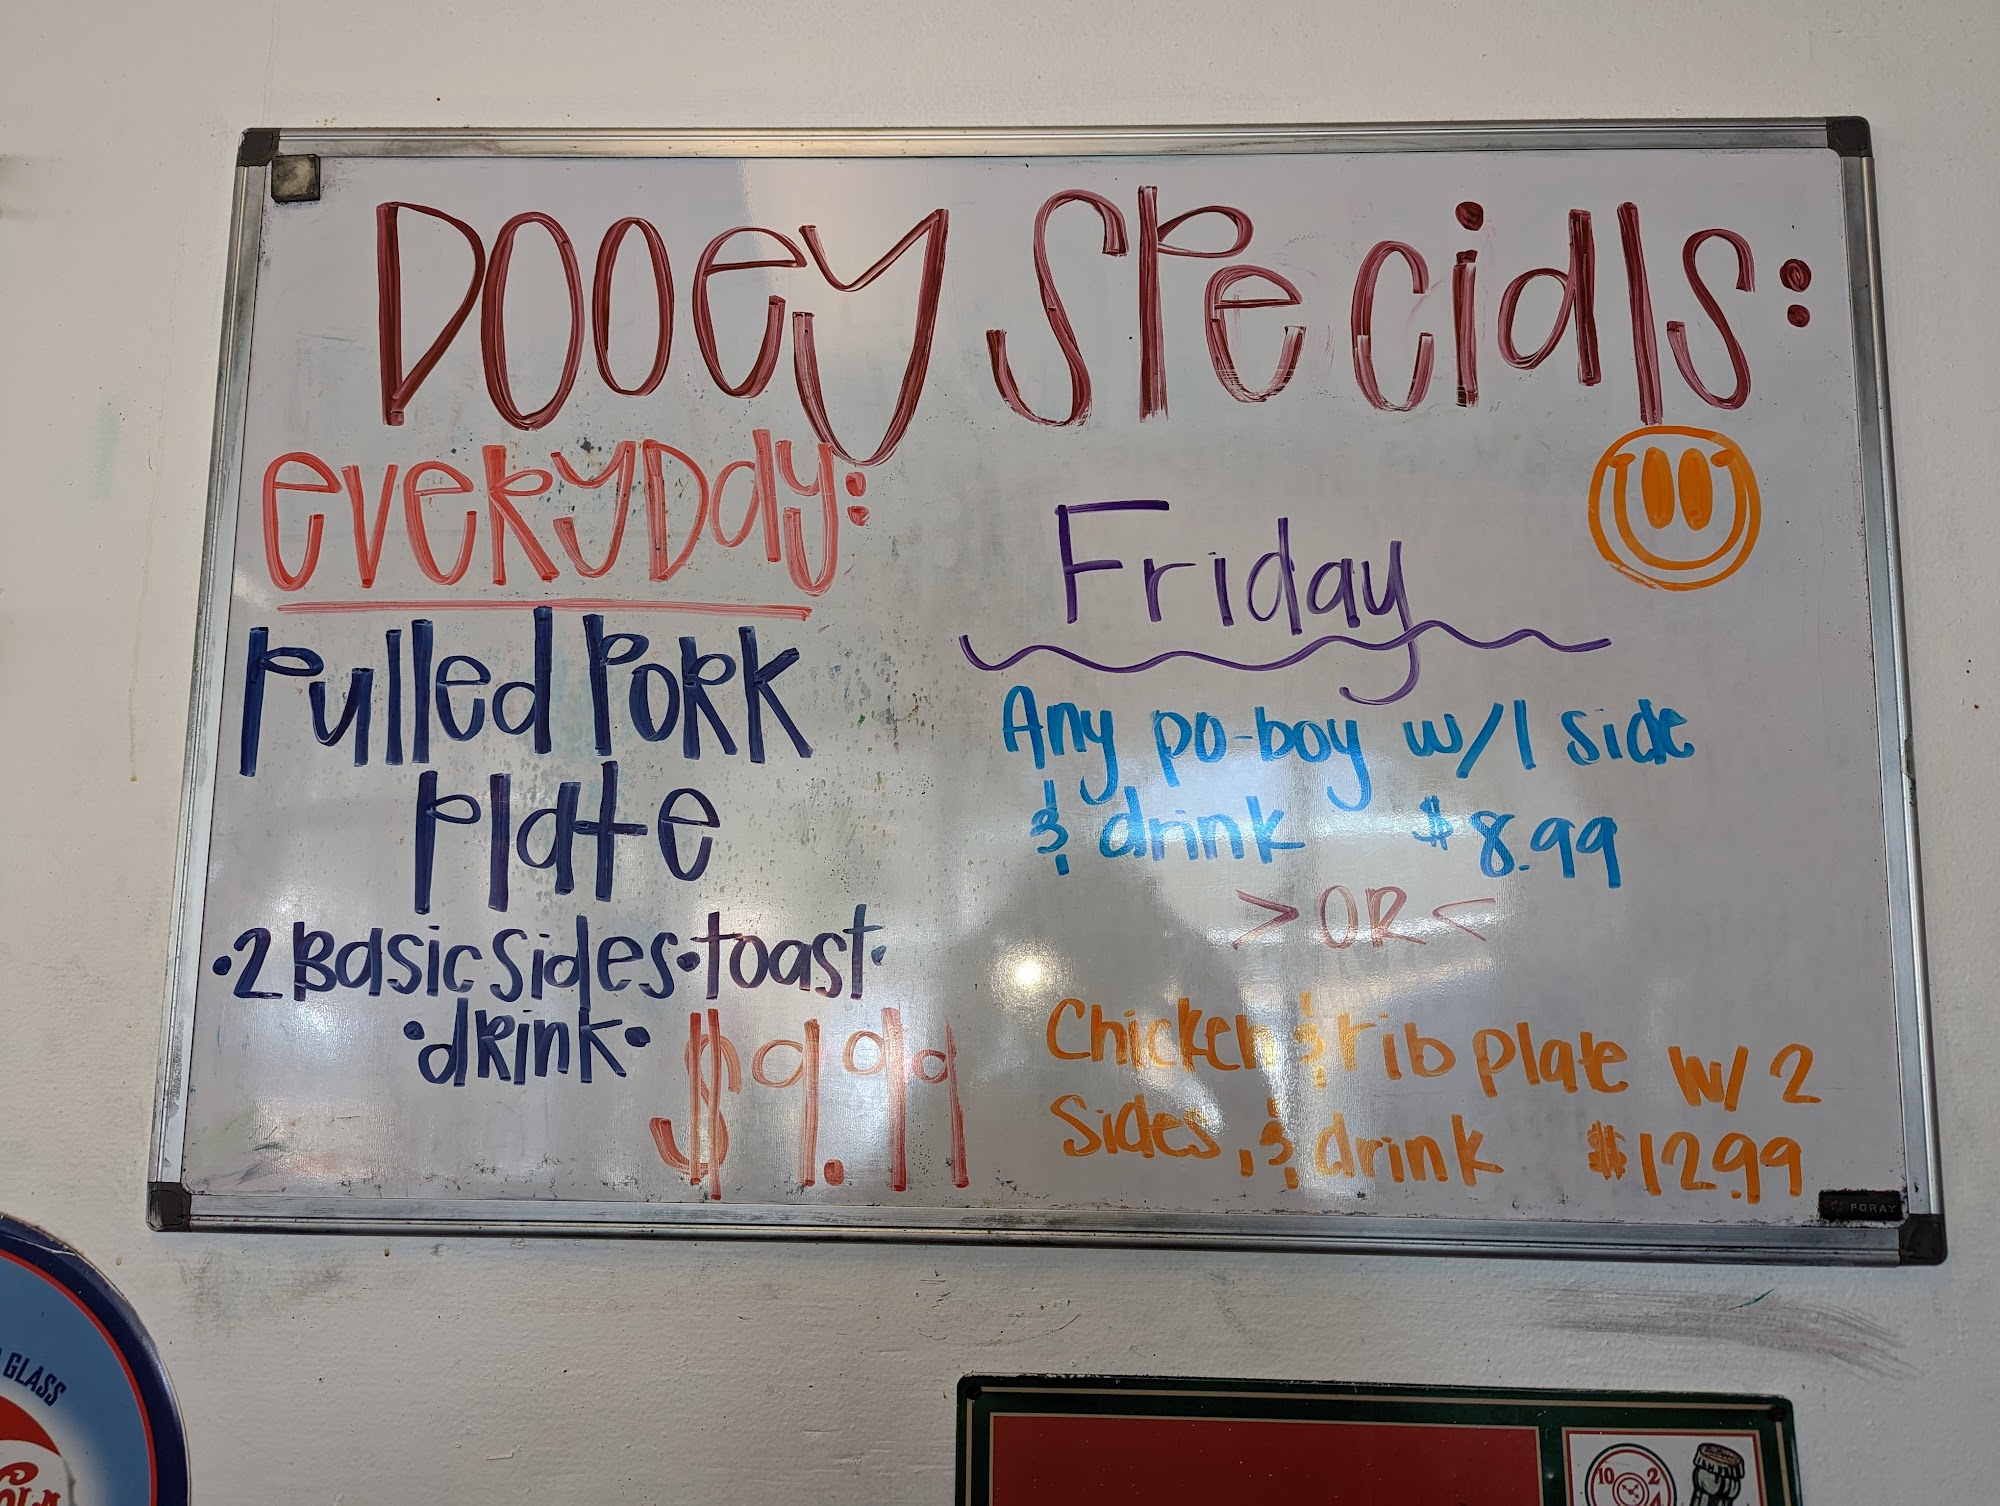 Dooey Specials:
everyday:
Pulled Pork
Plate
•2 Basic Sides•toast•
•drink•
$9.99
Friday
Any po-boy w/1 side
& drink $8.99
>OR<
Chicken & rib plate w/ 2
Sides, & drink $12.99
FORAY
GLASS
10 2